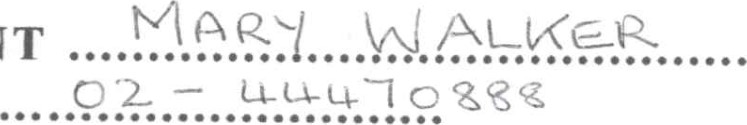 NT MARY WALKER
02 - 44470888